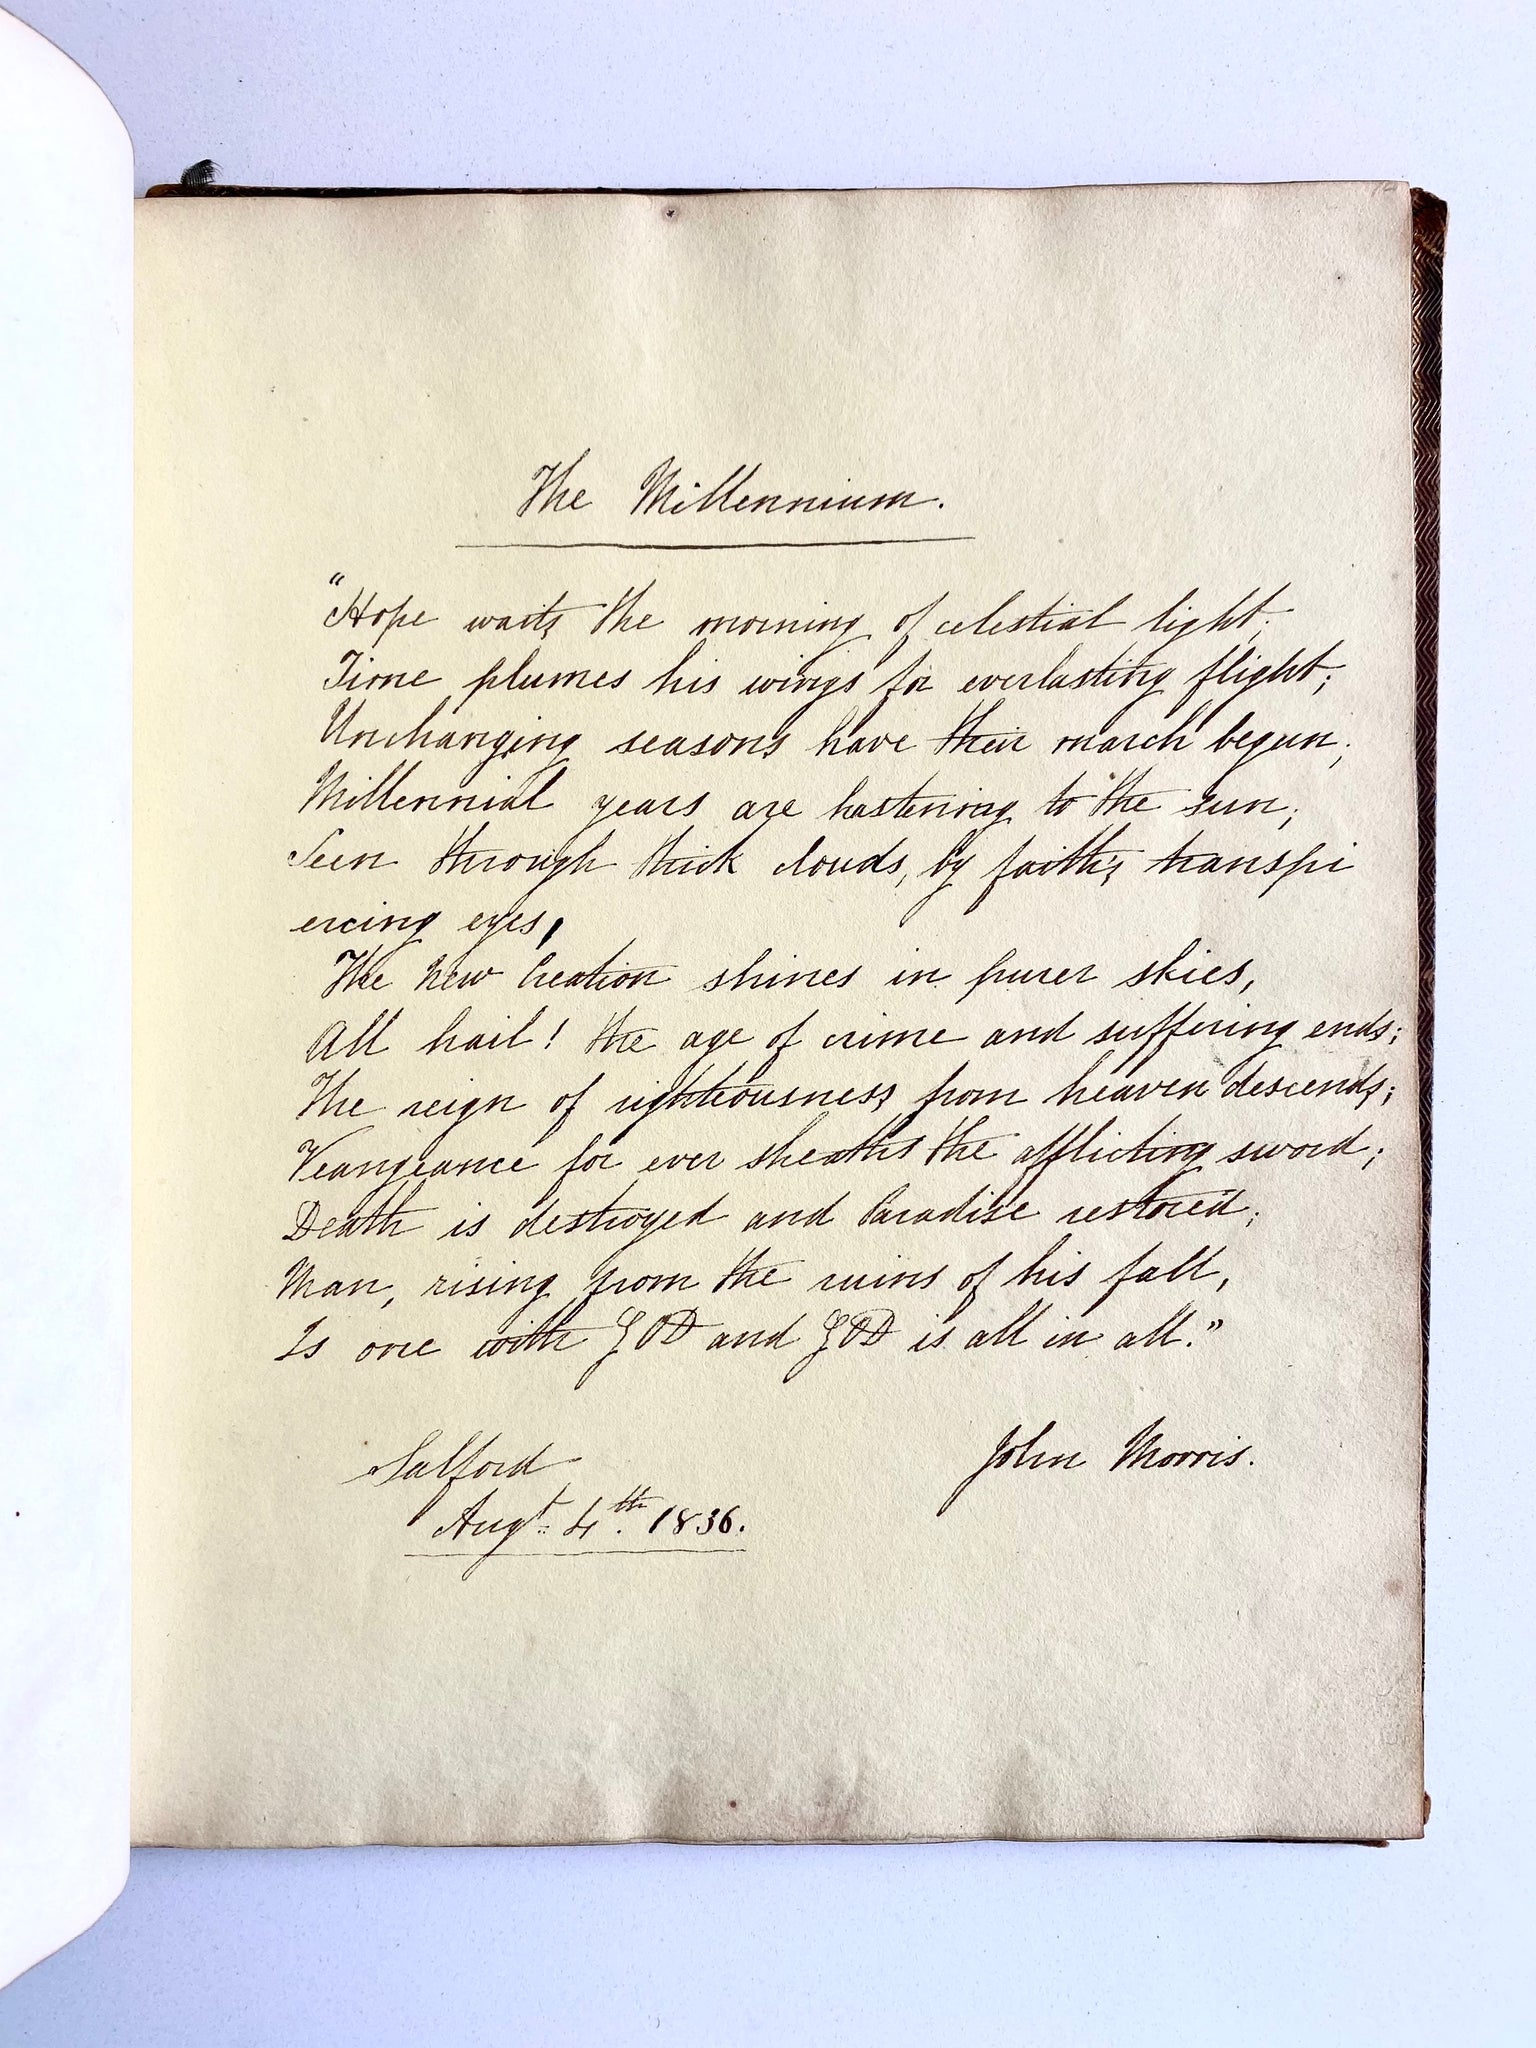 The Millennium.
"Hope waits the morning of celestial light;
Time plumes his wings for everlasting flight;
Unchanging seasons have their march begun;
Millennial years are hastening to the sun;
Seen through thick clouds, by faith's transpi
ercing eyes,
The New Creation shines in purer skies,
All hail! the age of crime and suffering ends;
The reign of righteousness from heaven descends;
Veangeance for ever sheaths the afflicting sword;
Death is destroyed and Paradise restored;
Man, rising from the ruins of his fall,
Is one with GOD and GOD is all in all."
John Morris.
Salford
Augt. 4th. 1836.